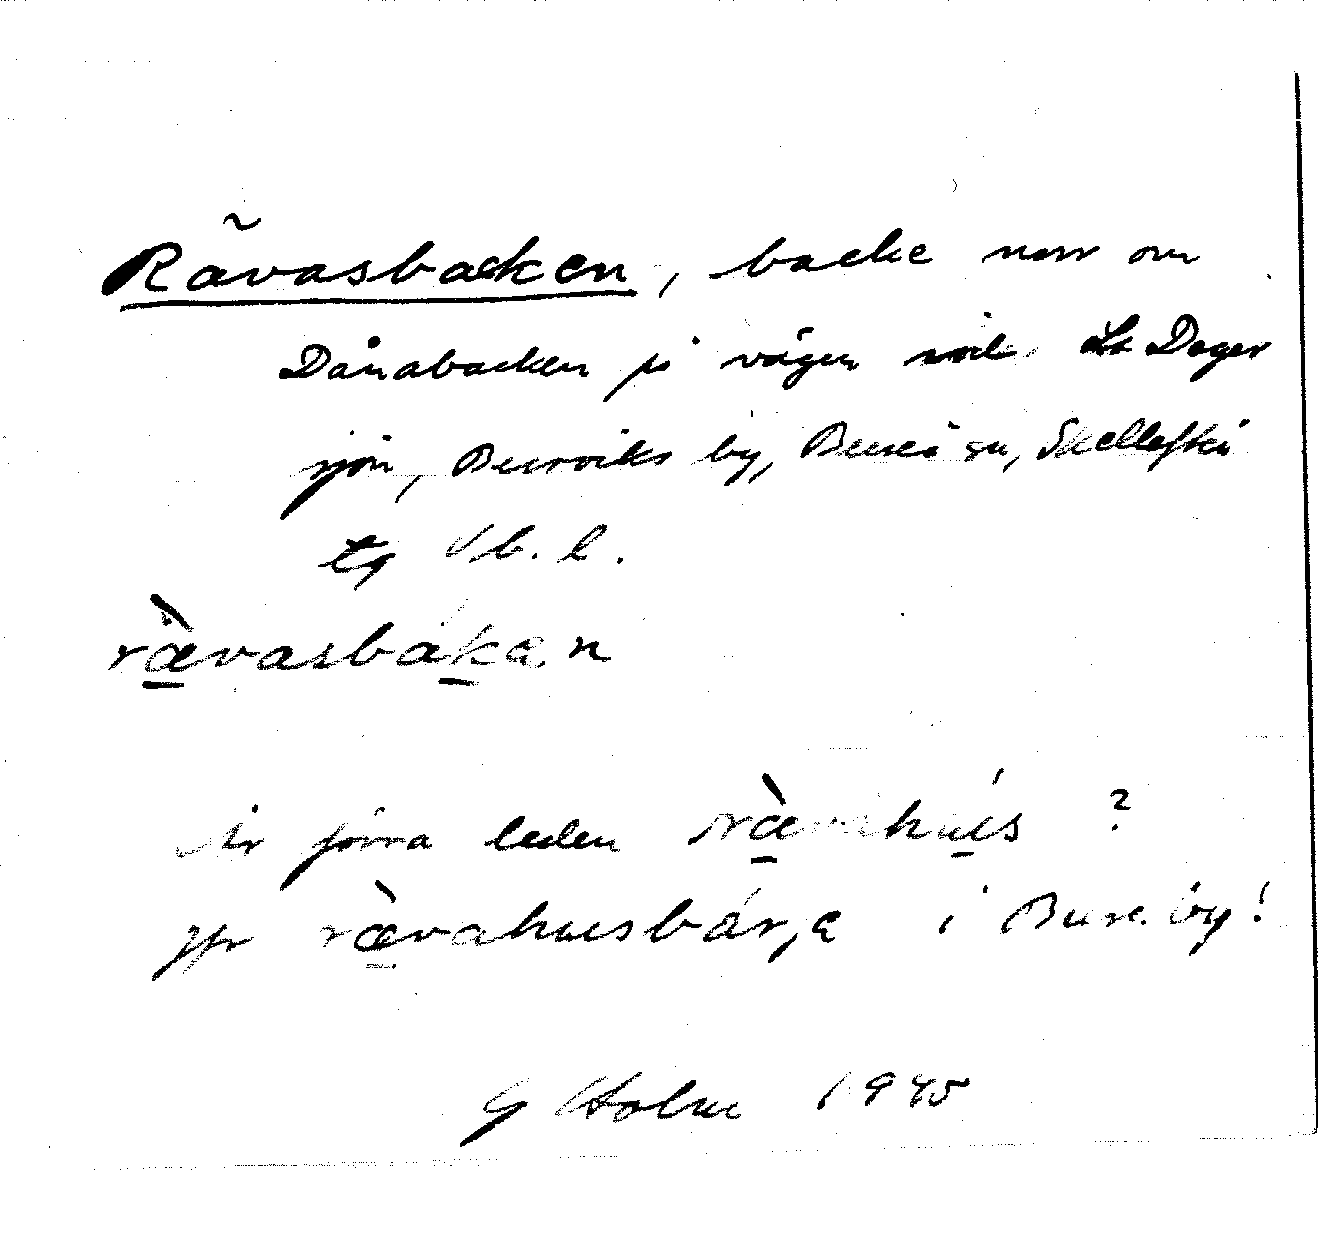 Rävasbacken, backe norr om
Dånabacken på vägen mot St Deger
sjön, Burviks by, Bureå sn, Skellefteå
tg Vb. l.
rævasbákæn
Är förra leden rævahús ?
jfr rævahusbárjæ i Bure by!
G Holm 1945